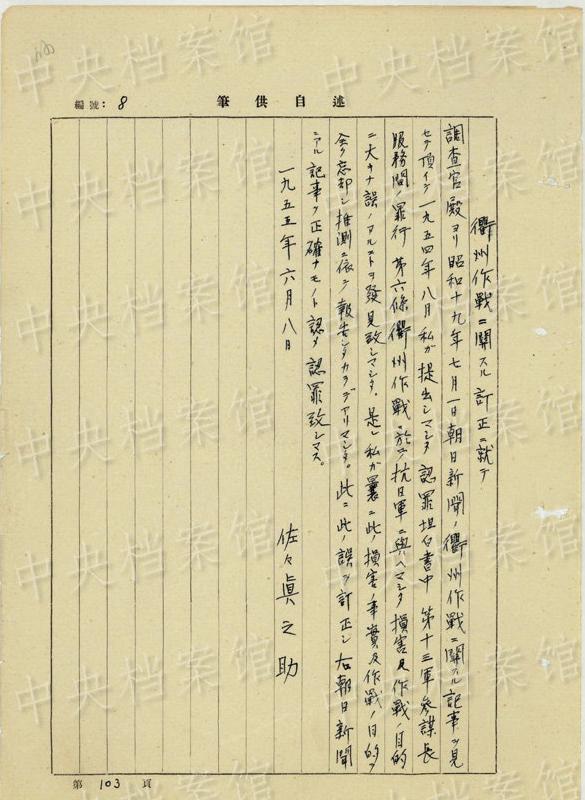 編號：8
述自供筆
衢州作戰ニ関スル訂正ニ就テ
調查官殿ヨリ昭和十九年七月一日朝日新聞ノ衢州作戰ニ関スル記事ヲ見
セテ頂イテ一九五四年八月私ガ提出シマシタ認罪坦白書中第十三軍参謀長
服務間ノ罪行第六條衢州作戰ニ於テ抗日軍ニ與ヘマシタ損害及作戰ノ目的
ニ大キナ誤ノアルコトヲ發見致シマシタ。是レ私ガ曩ニ此ノ損害ノ事實及作戰ノ目的ヲ
全ク忘却シ推測ニ依ッテ報告シタカラデアリマシタ。此ニ此ノ誤ヲ訂正シ右朝日新聞
ニアル記事ヲ正確ナモノト認メ認罪致シマス。
一九五五年六月八日
佐々眞之助
第103頁
中央档案馆